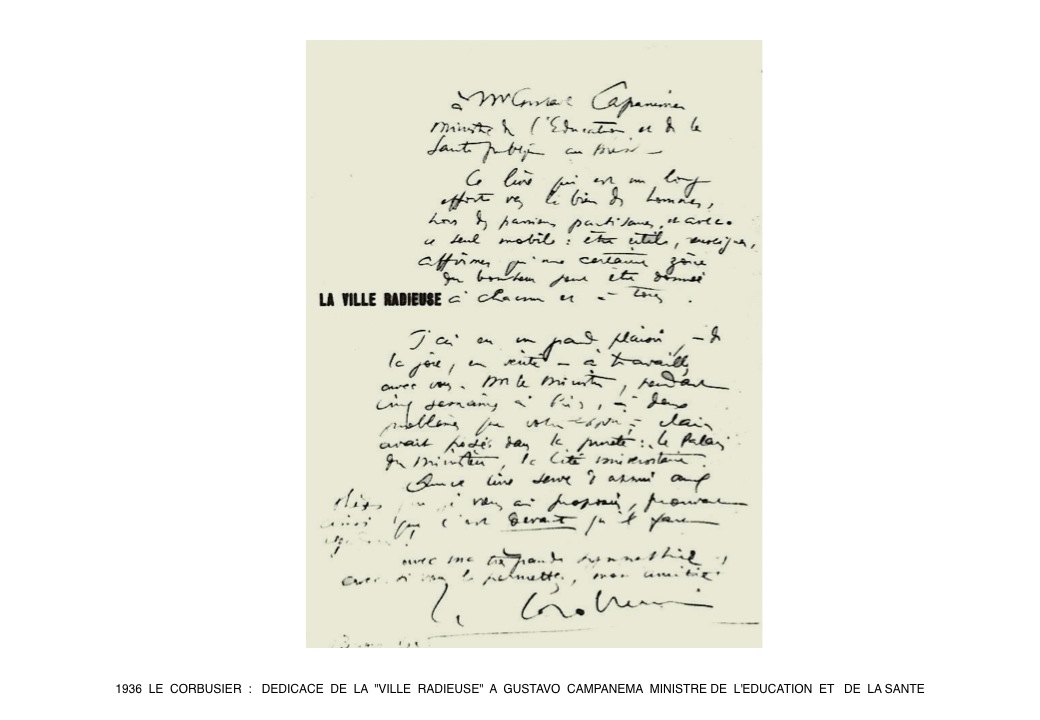 à Mr Gustave Capanema
Ministre de l'Education et de la
Santé publique au Brésil —
Ce livre qui est un long
effort vers le bien des hommes,
hors des passions partisanes, et avec
ce seul mobile : être utile, enseigner,
affirmer qu'une certaine
du bonheur peut être donnée
LA VILLE RADIEUSE à chacun et à tous .
J'ai eu un grand plaisir, – de
la joie, en vérité – à travailler
avec vous . Mr le Ministre , pendant
cinq semaines à Rio, – deux
problèmes que votre esprit clair
avait posés dans la pureté : le Palais
du Ministère, la Cité universitaire .
Que ce livre serve d'appui aux
que je vous ai proposées, prouvant
ainsi que c'est devant qu'il faut
avec ma très grande
avec si vous le permettez, mon amitié
Le Corbusier
1936 LE CORBUSIER : DEDICACE DE LA "VILLE RADIEUSE" A GUSTAVO CAMPANEMA MINISTRE DE L'EDUCATION ET DE LA SANTE